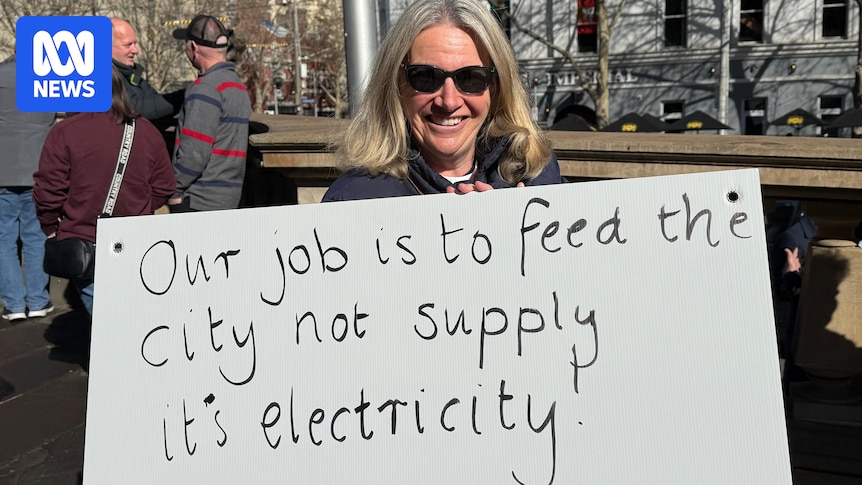 ABC
NEWS
IMPERIAL
COUNTRY ROAD
Our job is to feed the
city not supply
it's electricity!